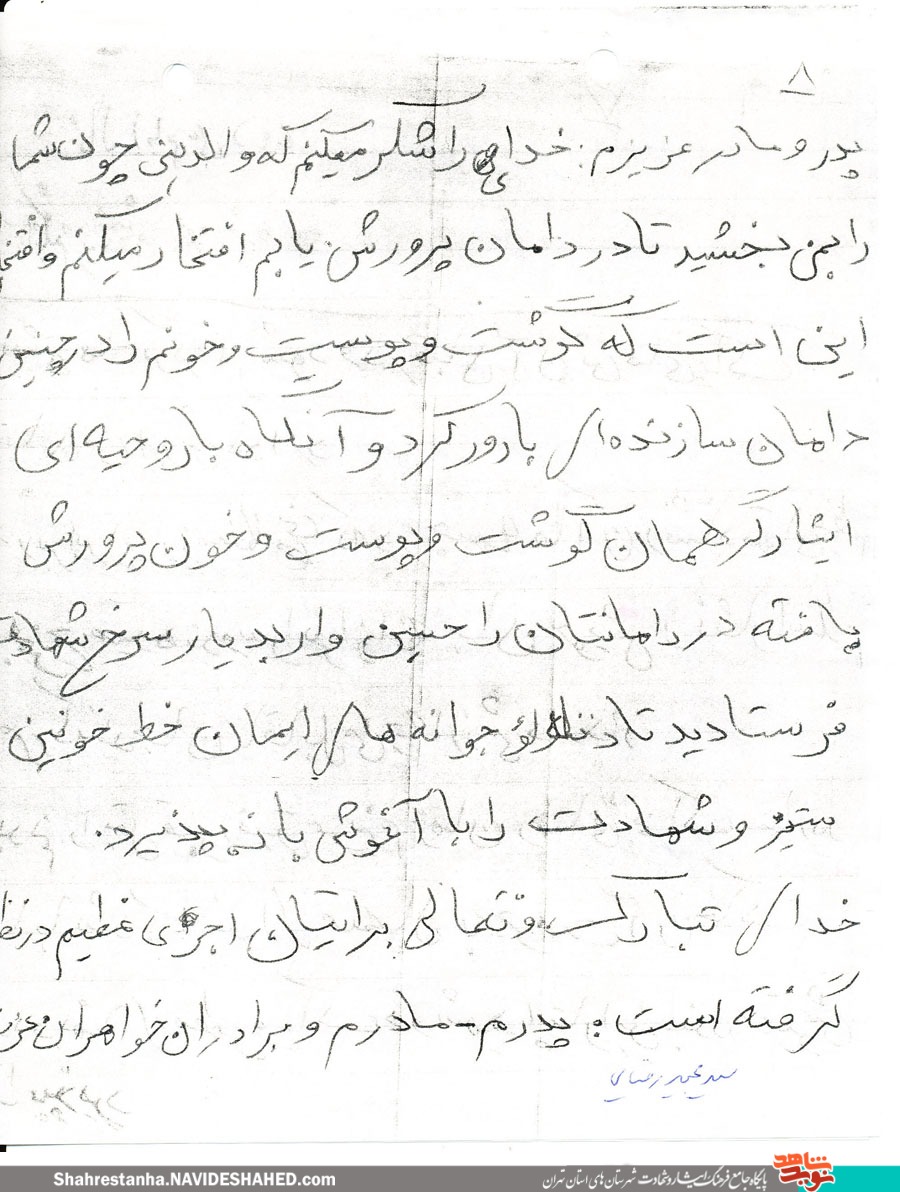 ۸
پدر و مادر عزیزم: خدای را شکر میکنم که والدینی چون شما
را بمن بخشید تا در دامان پرورش یابم افتخار میکنم و
این است که گوشت و پوست و خونم را در چنین
دامان سازنده‌ای بارور کرد و آنگاه با روحیه ای
ایثارگر همان گوشت و پوست و خون پرورش
یافته در دامانتان را حسین وار بدیار سرخ شهادت
فرستادید تا جوانه های ایمان خط خونین
ستیز و شهادت را با آغوش باز پذیرد.
خدای تبارک و تعالی برایتان اجری عظیم در
گرفته است: پدرم - مادرم و برادران خواهران
شهید رضایی
Shahrestanha.NAVIDESHAHED.com
پایگاه جامع فرهنگ ایثار و شهادت شهرستان های استان تهران
نوید شاهد